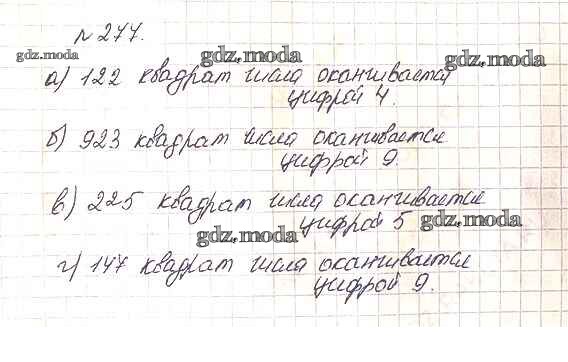 № 277.
gdz.moda
gdz.moda
gdz.moda
а) 122 квадрат числа оканчивается
цифрой 4.
б) 923 квадрат числа оканчивается
цифрой 9.
в) 225 квадрат числа оканчивается
цифрой 5
gdz.moda
gdz.moda
г) 147 квадрат числа оканчивается
цифрой 9.